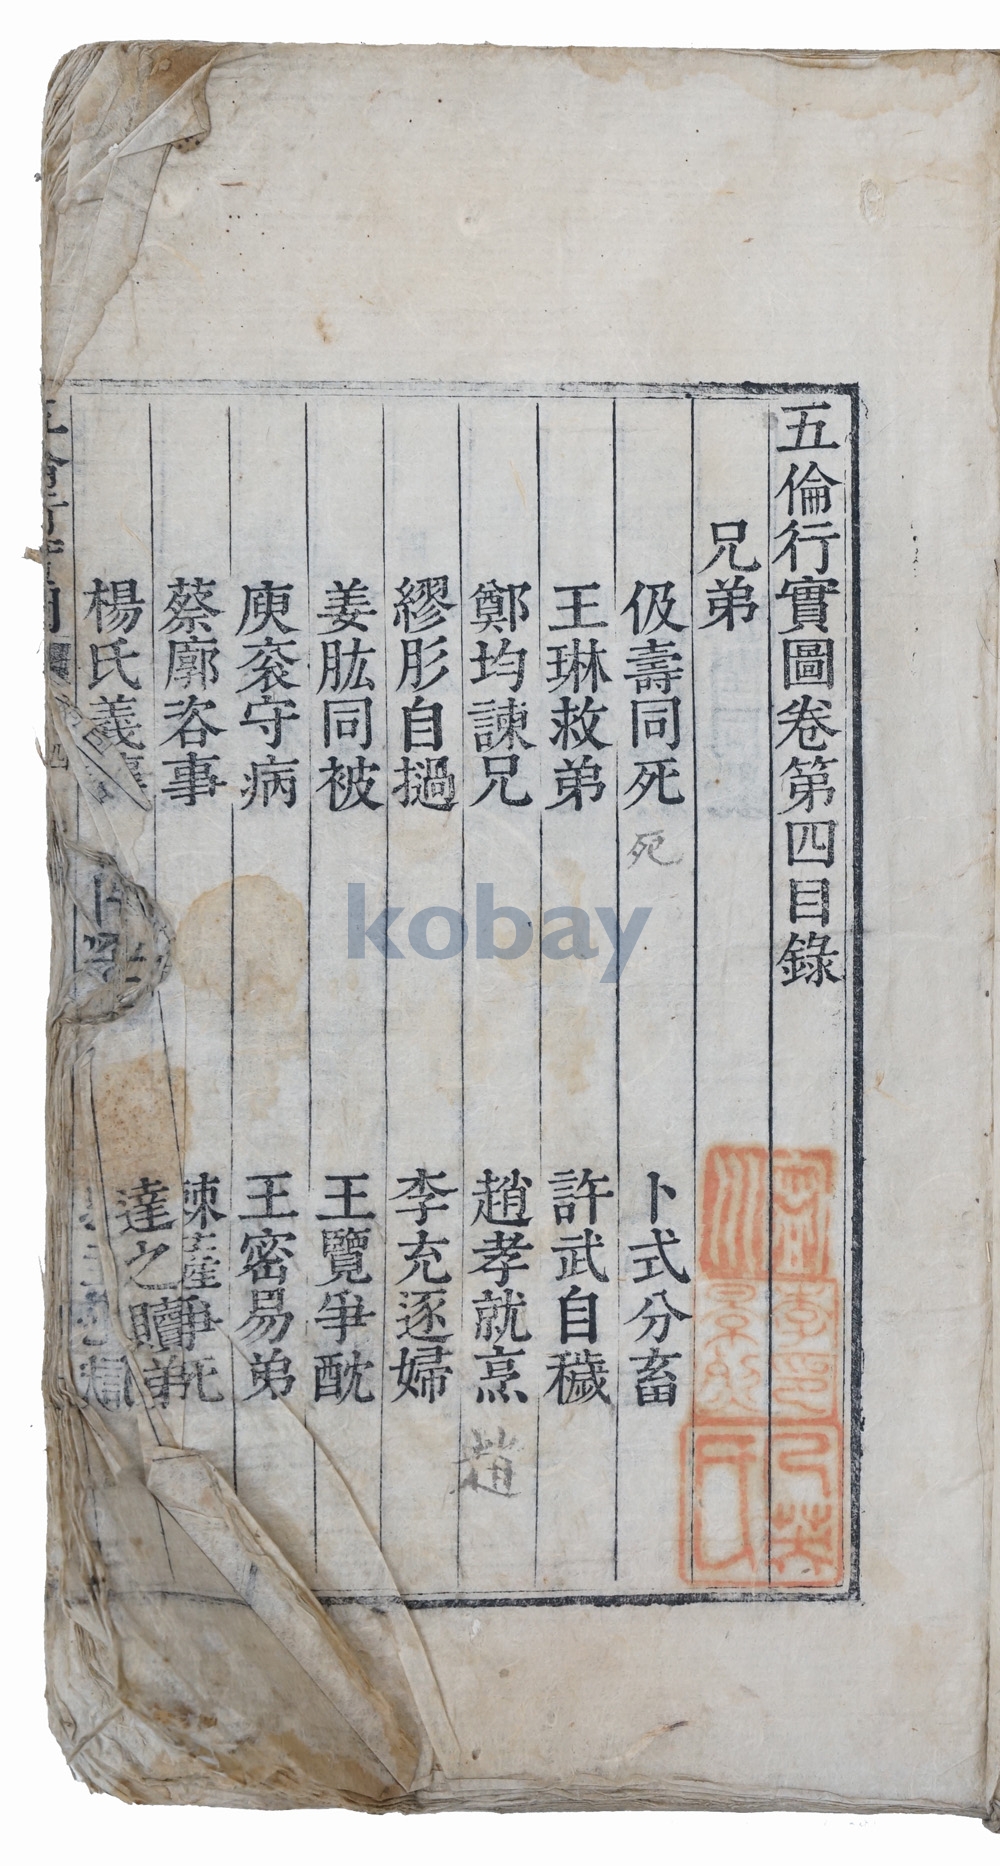 五倫行實圖卷第四目錄
兄弟
伋壽同死 卜式分畜
死
王琳救弟 許武自穢
鄭均諫兄 趙孝就烹
趙
繆肜自撾 李充逐婦
姜肱同被 王覽爭酖
庾袞守病 王密易弟
蔡廓咨事 棘薩爭死
楊氏義 達之贖弟
kobay